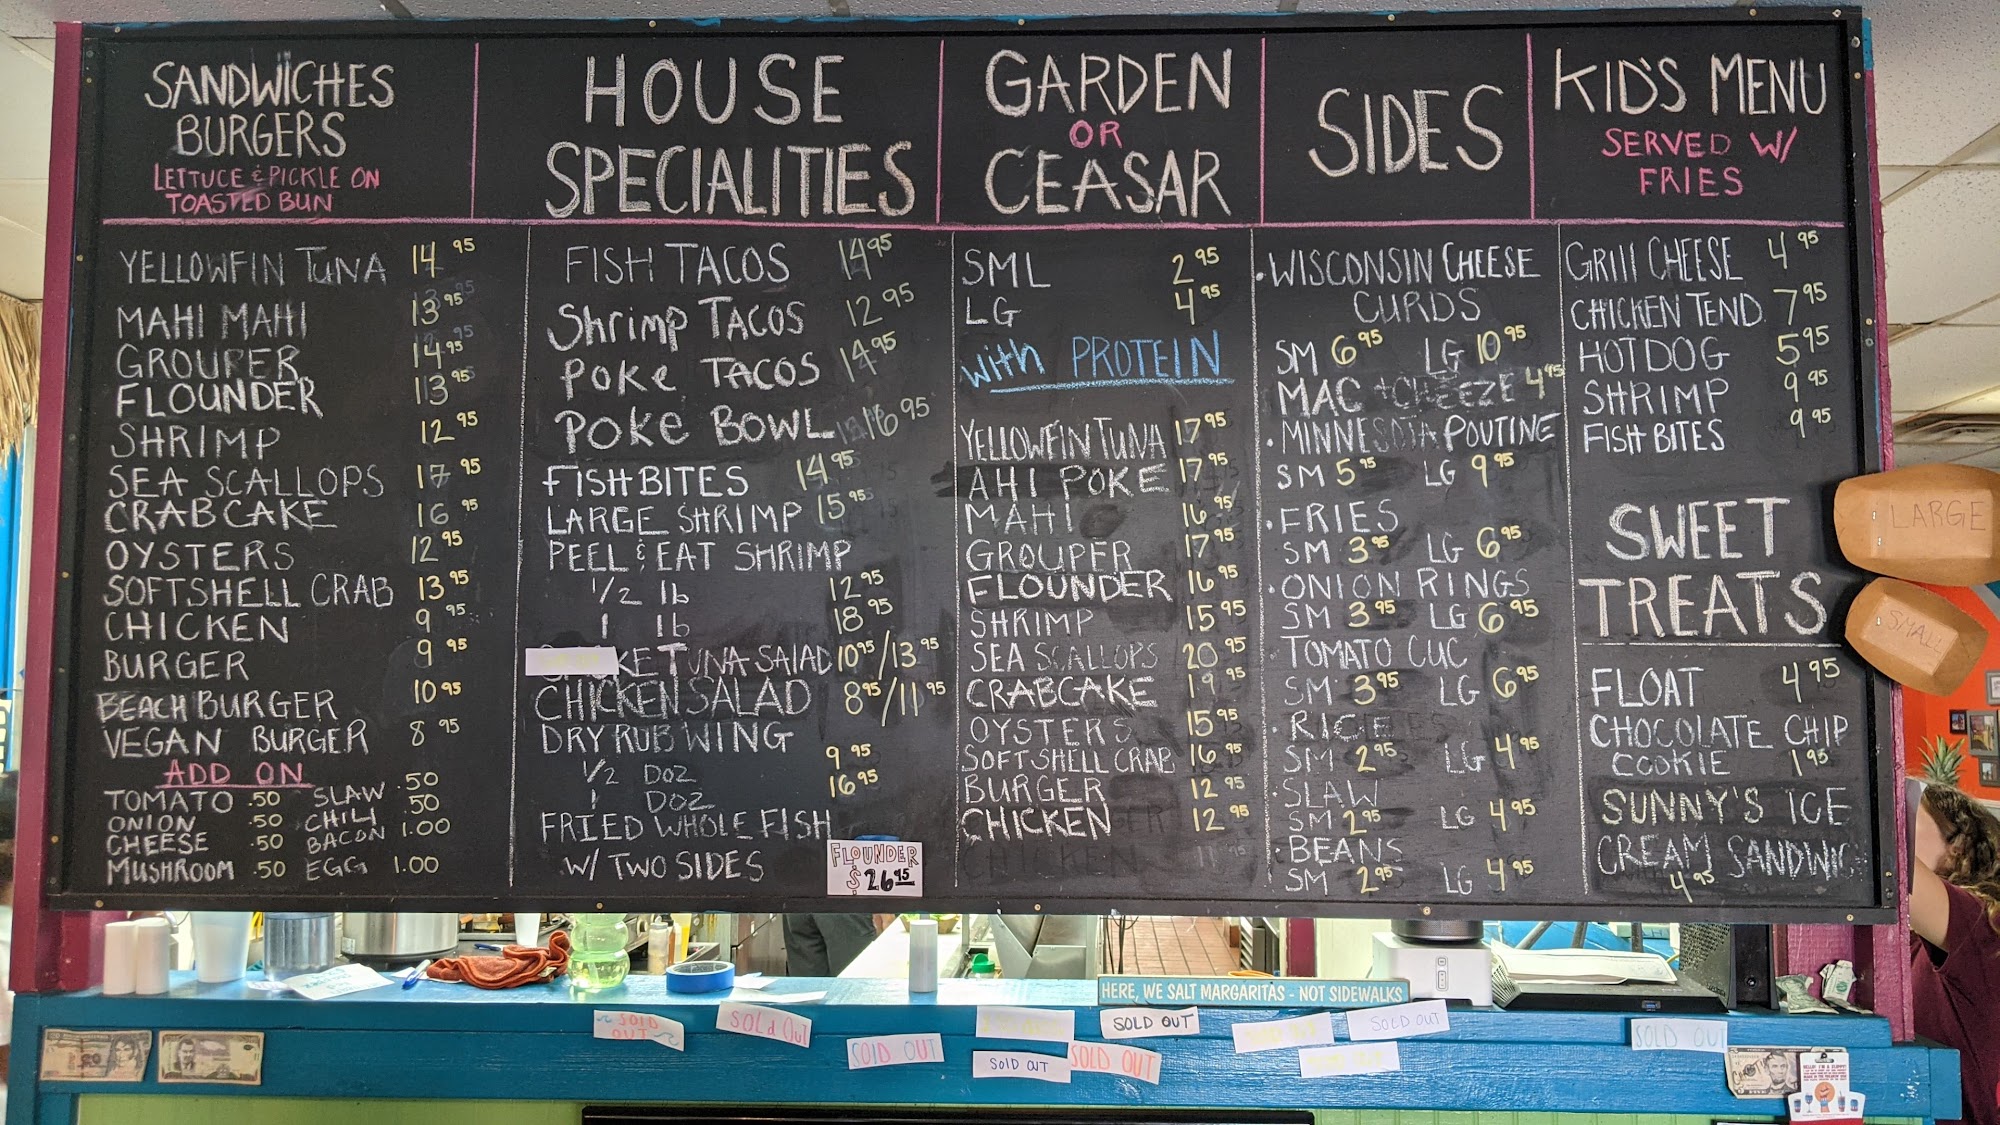 SANDWICHES
BURGERS
LETTUCE & PICKLE ON
TOASTED BUN
YELLOWFIN TUNA 14 95
MAHI MAHI 13 95
GROUPER 14 95
FLOUNDER 13 95
SHRIMP 12 95
SEA SCALLOPS 17 95
CRABCAKE 16 95
OYSTERS 12 95
SOFTSHELL CRAB 13 95
CHICKEN 9 95
BURGER 9 95
BEACH BURGER 10 95
VEGAN BURGER 8 95
ADD ON
TOMATO .50 SLAW .50
ONION .50 CHILI .50
CHEESE .50 BACON 1.00
MUSHROOM .50 EGG 1.00
HOUSE
SPECIALITIES
FISH TACOS 14 95
Shrimp TACOS 12 95
POKE TACOS 14 95
POKE BOWL 16 95
FISH BITES 14 95
LARGE SHRIMP 15 95
PEEL & EAT SHRIMP
1/2 lb 12 95
1 lb 18 95
KE TUNA SALAD 10 95 / 13 95
CHICKEN SALAD 8 95 / 11 95
DRY RUB WING
1/2 DOZ 9 95
1 DOZ 16 95
FRIED WHOLE FISH
W/ TWO SIDES
FLOUNDER
$ 26 95
GARDEN
OR
CEASAR
SML 2 95
LG 4 95
with PROTEIN
YELLOWFIN TUNA 17 95
AHI POKE 17 95
MAHI 16 95
GROUPER 17 95
FLOUNDER 16 95
SHRIMP 15 95
SEA SCALLOPS 20 95
CRABCAKE 19 95
OYSTERS 15 95
SOFTSHELL CRAB 16 95
BURGER 12 95
CHICKEN 12 95
SIDES
• WISCONSIN CHEESE
CURDS
SM 6 95 LG 10 95
MAC + CHEEZE 4 95
• MINNESOTA POUTINE
SM 5 95 LG 9 95
• FRIES
SM 3 95 LG 6 95
• ONION RINGS
SM 3 95 LG 6 95
TOMATO CUC
SM 3 95 LG 6 95
• RICE
SM 2 95 LG 4 95
• SLAW
SM 2 95 LG 4 95
• BEANS
SM 2 95 LG 4 95
KID'S MENU
SERVED W/
FRIES
GRILL CHEESE 4 95
CHICKEN TEND 7 95
HOTDOG 5 95
SHRIMP 9 95
FISH BITES 9 95
SWEET
TREATS
FLOAT 4 95
CHOCOLATE CHIP
COOKIE 1 95
SUNNY'S ICE
CREAM SANDWIC
4 95
LARGE
SMALL
HERE, WE SALT MARGARITAS - NOT SIDEWALKS
SOLD OUT
SOLd OUT
SOLD OUT
SOLD OUT
SOLD OUT
SOLD OUT
SOLD OUT
SOLD OUT